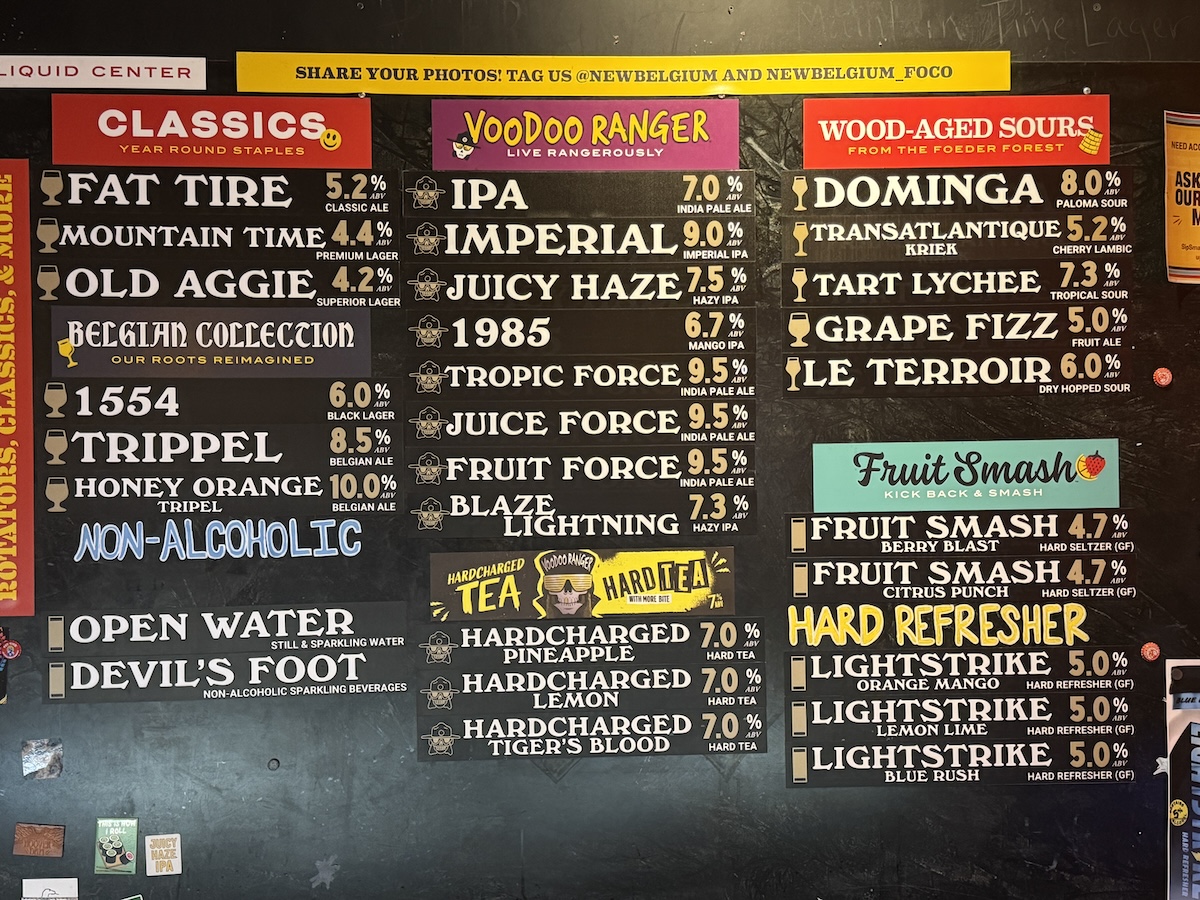 Mountain Time Lager
LIQUID CENTER
SHARE YOUR PHOTOS! TAG US @NEWBELGIUM AND NEWBELGIUM_FOCO
ROTATORS, CLASSICS, & MORE
CLASSICS
YEAR ROUND STAPLES
FAT TIRE 5.2% ABV
CLASSIC ALE
MOUNTAIN TIME 4.4% ABV
PREMIUM LAGER
OLD AGGIE 4.2% ABV
SUPERIOR LAGER
BELGIAN COLLECTION
OUR ROOTS REIMAGINED
1554 6.0% ABV
BLACK LAGER
TRIPPEL 8.5% ABV
BELGIAN ALE
HONEY ORANGE 10.0% ABV
TRIPEL BELGIAN ALE
NON-ALCOHOLIC
OPEN WATER
STILL & SPARKLING WATER
DEVIL'S FOOT
NON-ALCOHOLIC SPARKLING BEVERAGES
VOODOO RANGER
LIVE RANGEROUSLY
IPA 7.0% ABV
INDIA PALE ALE
IMPERIAL 9.0% ABV
IMPERIAL IPA
JUICY HAZE 7.5% ABV
HAZY IPA
1985 6.7% ABV
MANGO IPA
TROPIC FORCE 9.5% ABV
INDIA PALE ALE
JUICE FORCE 9.5% ABV
INDIA PALE ALE
FRUIT FORCE 9.5% ABV
INDIA PALE ALE
BLAZE 7.3% ABV
LIGHTNING HAZY IPA
HARDCHARGED
TEA
VOODOO RANGER
HARD TEA
WITH MORE BITE
7% ABV
HARDCHARGED 7.0% ABV
PINEAPPLE HARD TEA
HARDCHARGED 7.0% ABV
LEMON HARD TEA
HARDCHARGED 7.0% ABV
TIGER'S BLOOD HARD TEA
WOOD-AGED SOURS
FROM THE FOEDER FOREST
DOMINGA 8.0% ABV
PALOMA SOUR
TRANSATLANTIQUE 5.2% ABV
KRIEK CHERRY LAMBIC
TART LYCHEE 7.3% ABV
TROPICAL SOUR
GRAPE FIZZ 5.0% ABV
FRUIT ALE
LE TERROIR 6.0% ABV
DRY HOPPED SOUR
Fruit Smash
KICK BACK & SMASH
FRUIT SMASH 4.7% ABV
BERRY BLAST HARD SELTZER (GF)
FRUIT SMASH 4.7% ABV
CITRUS PUNCH HARD SELTZER (GF)
HARD REFRESHER
LIGHTSTRIKE 5.0% ABV
ORANGE MANGO HARD REFRESHER (GF)
LIGHTSTRIKE 5.0% ABV
LEMON LIME HARD REFRESHER (GF)
LIGHTSTRIKE 5.0% ABV
BLUE RUSH HARD REFRESHER (GF)
NEED
ASK
OUR
THIS IS HOW
I ROLL
JUICY
HAZE
IPA
BLUE
HARD REFRESHER